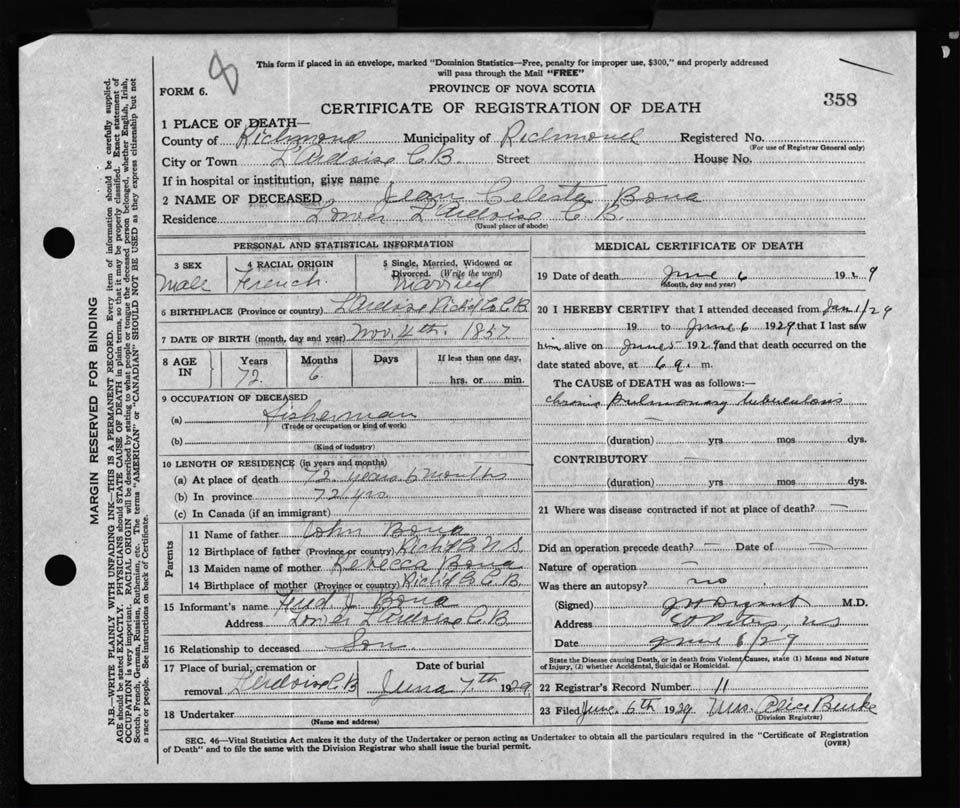 8
This form if placed in an envelope, marked "Dominion Statistics—Free, penalty for improper use, $300," and properly addressed
will pass through the Mail "FREE"
FORM 6.
PROVINCE OF NOVA SCOTIA
358
CERTIFICATE OF REGISTRATION OF DEATH
1 PLACE OF DEATH—
County of Richmond Municipality of Richmond Registered No.
(For use of Registrar General only)
City or Town L'Ardoise C.B. Street House No.
If in hospital or institution, give name
2 NAME OF DECEASED Jean Celeste Bona
Residence Lower L'Ardoise C.B.
(Usual place of abode)
PERSONAL AND STATISTICAL INFORMATION
3 SEX 4 RACIAL ORIGIN 5 Single, Married, Widowed or
Divorced. (Write the word)
Male French Married
6 BIRTHPLACE (Province or country) L'Ardoise Richd Co. C.B.
7 DATE OF BIRTH (month, day and year) Nov. 4th. 1857
8 AGE IN Years Months Days If less than one day,
72 6 hrs. or min.
9 OCCUPATION OF DECEASED
(a) Fisherman
(Trade or occupation or kind of work)
(b)
(Kind of industry)
10 LENGTH OF RESIDENCE (in years and months)
(a) At place of death 72 years 6 months
(b) In province 72 yrs
(c) In Canada (if an immigrant)
Parents
11 Name of father John Bona
12 Birthplace of father (Province or country) Richd Co N.S.
13 Maiden name of mother Rebecca Bona
14 Birthplace of mother (Province or country) Richd Co C.B.
15 Informant's name J. Bona
Address Lower L'Ardoise C.B
16 Relationship to deceased Son
17 Place of burial, cremation or Date of burial
removal L'Ardoise C.B June 7th 1929
18 Undertaker
(Name and address)
MEDICAL CERTIFICATE OF DEATH
19 Date of death June 6 19 29
(Month, day and year)
20 I HEREBY CERTIFY that I attended deceased from Jan 1/29
19 to June 6 1929 that I last saw
him alive on June 5 1929 and that death occurred on the
date stated above, at 6 a. m.
The CAUSE of DEATH was as follows:—
Chronic Pulmonary tuberculosis
(duration) yrs mos dys.
CONTRIBUTORY —
(duration) yrs mos dys.
21 Where was disease contracted if not at place of death? —
Did an operation precede death? — Date of —
Nature of operation —
Was there an autopsy? no
(Signed) M.D.
Address St Peters, N.S
Date June 6/29
State the Disease causing Death, or in death from Violent Causes, state (1) Means and Nature
of Injury, (2) whether Accidental, Suicidal or Homicidal.
22 Registrar's Record Number 11
23 Filed June 6th 1929 Mrs. Alice Burke
(Division Registrar)
SEC. 46—Vital Statistics Act makes it the duty of the Undertaker or person acting as Undertaker to obtain all the particulars required in the "Certificate of Registration
of Death" and to file the same with the Division Registrar who shall issue the burial permit.
(OVER)
MARGIN RESERVED FOR BINDING
N.B.—WRITE PLAINLY WITH UNFADING INK—THIS IS A PERMANENT RECORD. Every item of information should be carefully supplied.
AGE should be stated EXACTLY. PHYSICIANS should STATE CAUSE OF DEATH in plain terms, so that it may be properly classified. Exact statement of
OCCUPATION is very important. RACIAL ORIGIN will be described by stating to what people or tongue the deceased person belonged, whether English, Irish,
Scotch, French, German, Russian, Ruthenian, etc. The terms "AMERICAN" or "CANADIAN" SHOULD NOT BE USED as they express citizenship but not
a race or people. See instructions on back of Certificate.